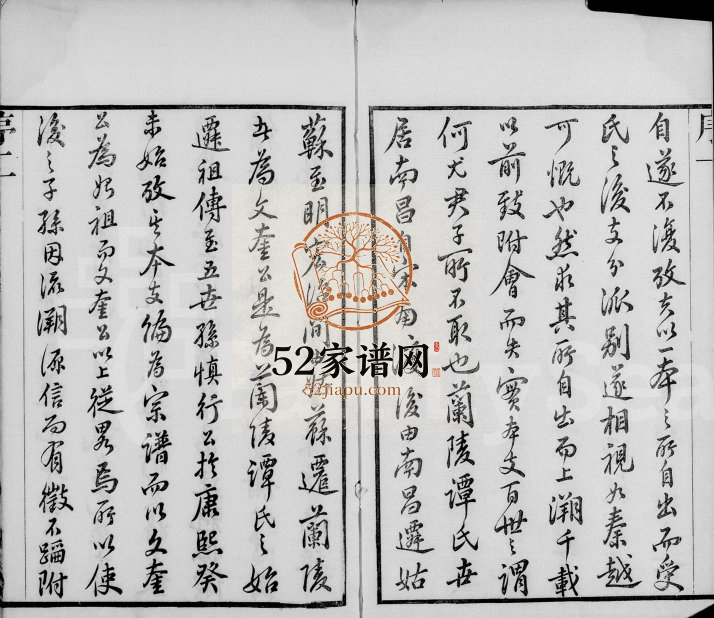 序一
自遂不復攷夫以一本之所自出而受
氏之後支分派别遂相視如秦越
可慨也然求其所自出而上溯千載
以前致附會而失實本支百世之謂
何尤君子所不取也蘭陵譚氏世
居南昌自宋南渡後由南昌遷姑
蘇至明 蘇遷蘭陵
者為文奎公是為蘭陵譚氏之始
遷祖傳至五世孫慎行公於康熙癸
未始攷其本支編為宗譜而以文奎
公為始祖而文奎公以上從畧焉所以使
後之子孫因流溯源信而有徵不蹈附
序二
52家谱网
52jiapu.com